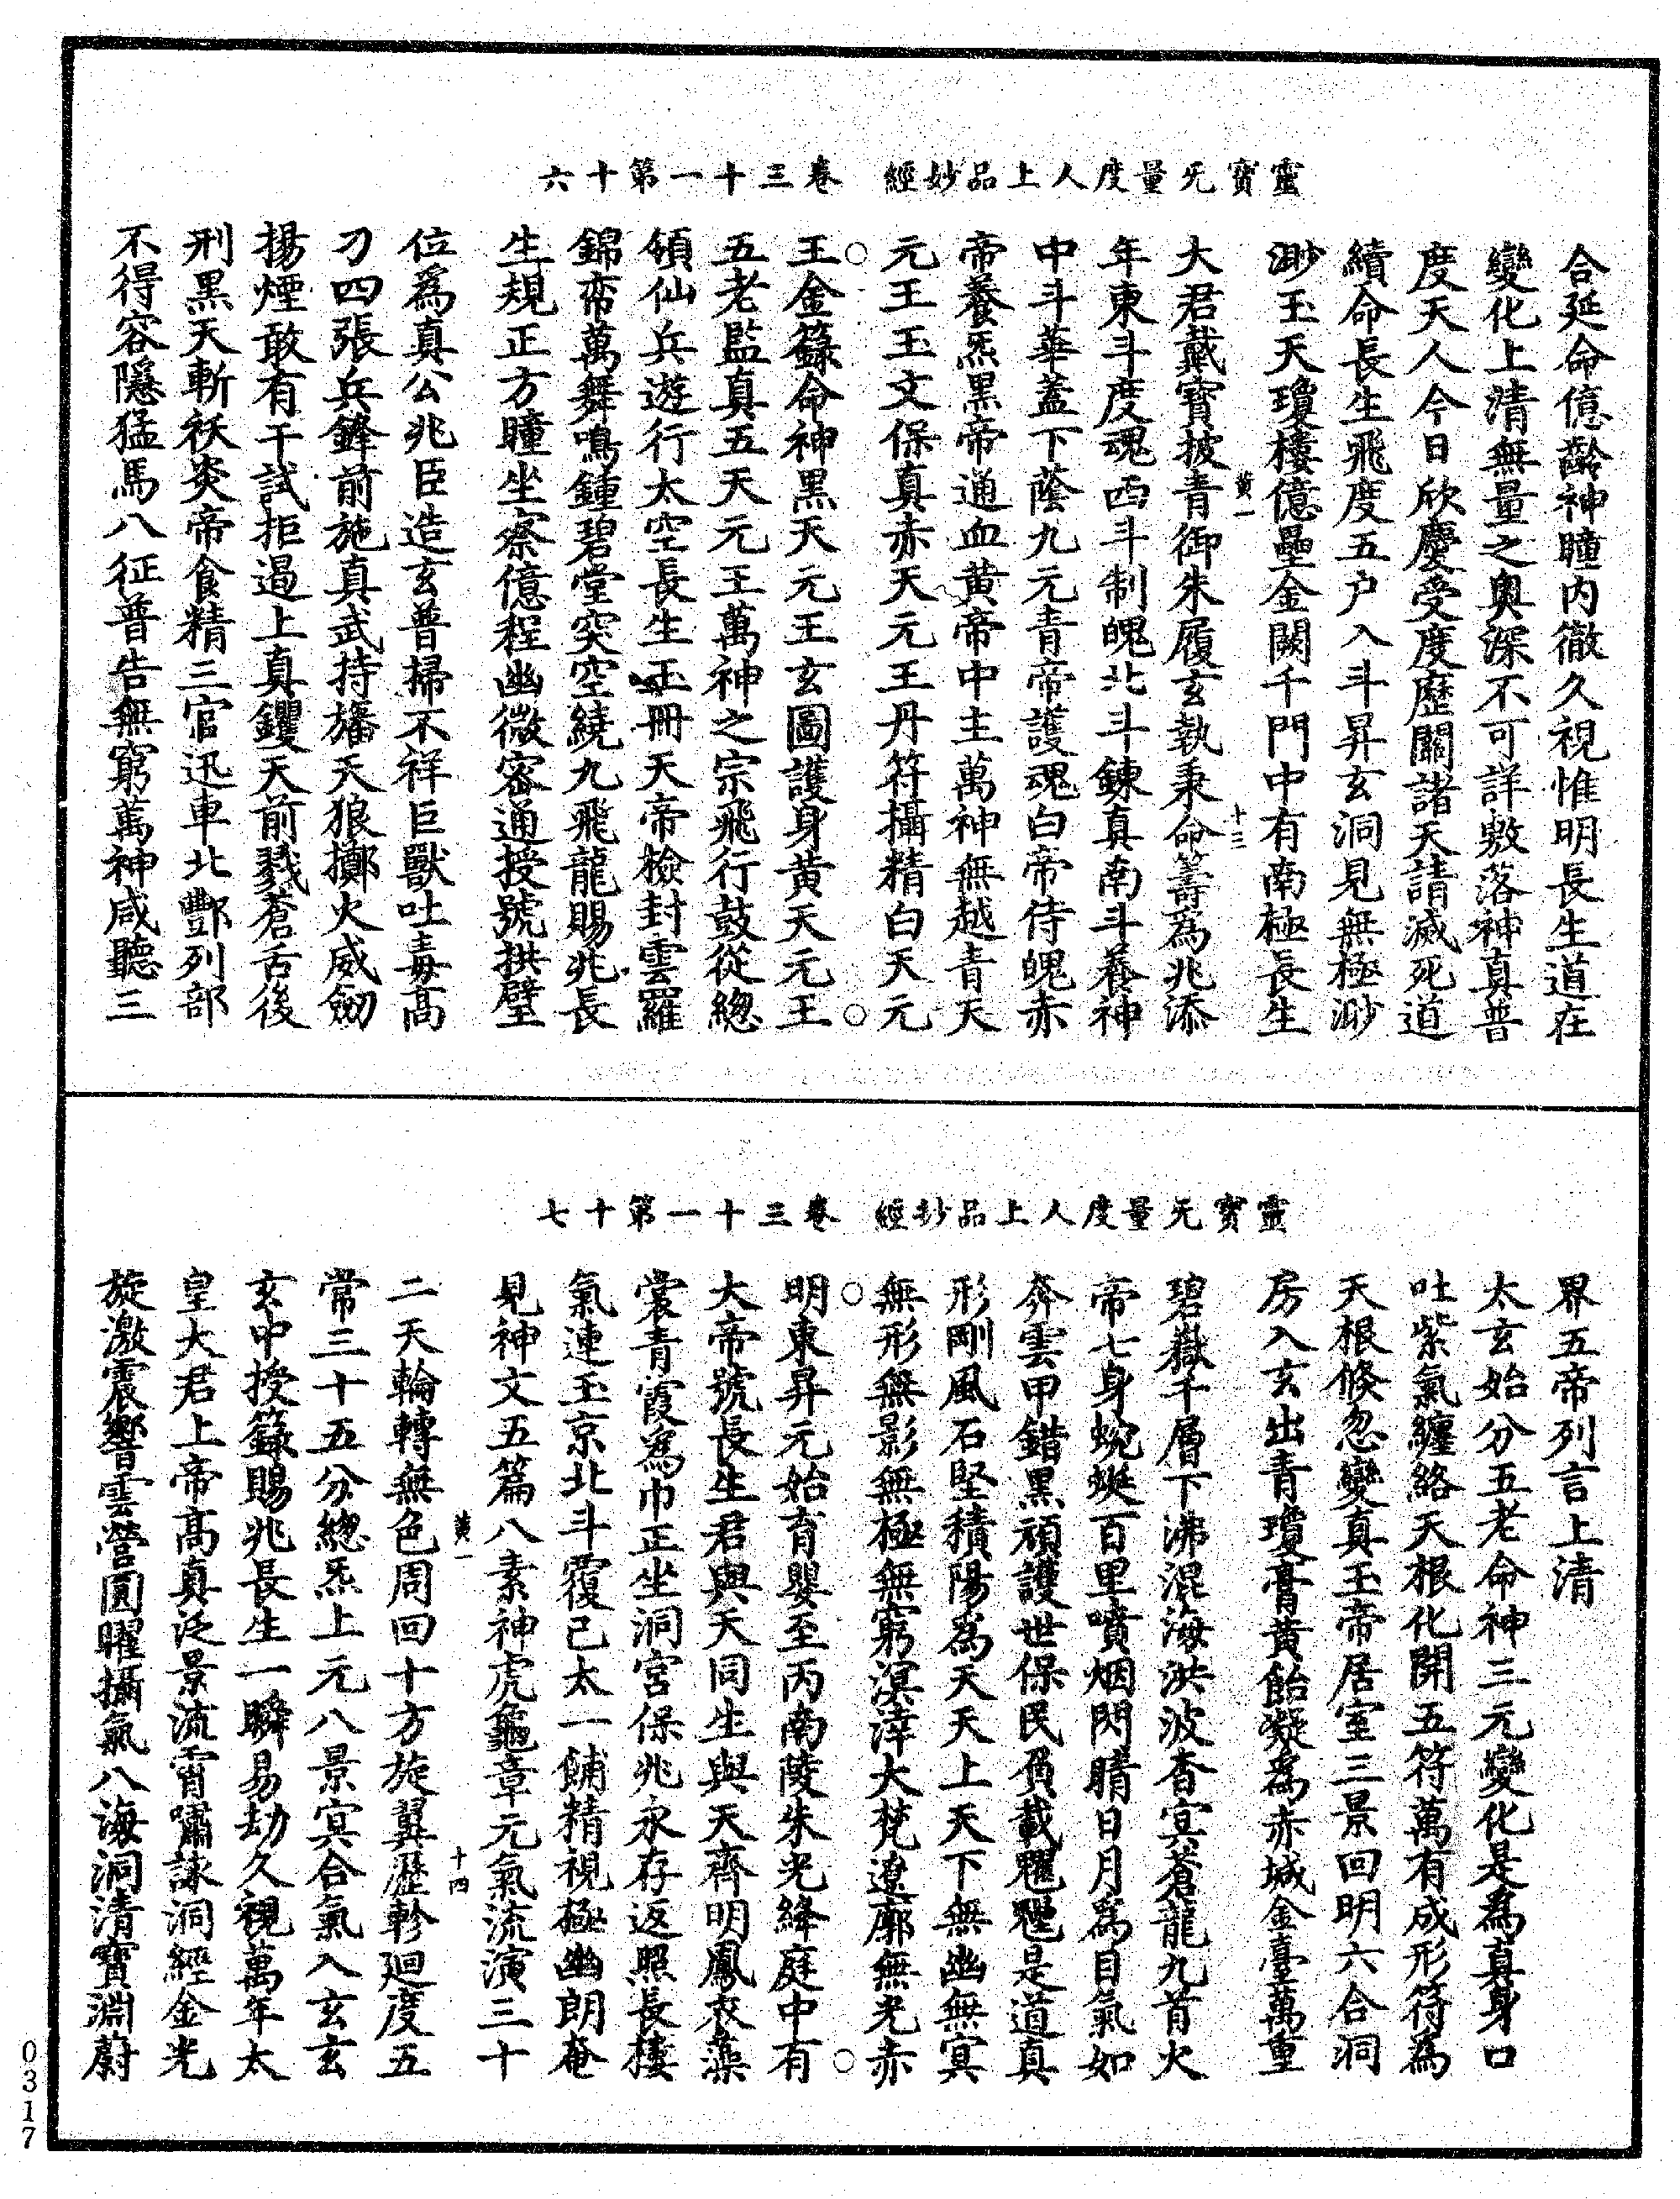 靈寶无量度人上品妙經　卷三十一第十六
合延命億齡神瞳内徹久視惟明長生道在
變化上清無量之奧深不可詳敷落神真普
度天人今日欣慶受度歷關諸天請滅死道
續命長生飛度五户入斗昇玄洞見無極渺
渺玉天瓊樓億壘金闕千門中有南極長生
黄一　十三
大君戴寶披青御朱履玄執秉命籌爲兆添
年東斗度魂西斗制魄北斗鍊真南斗養神
中斗華蓋下蔭九元青帝護魂白帝侍魄赤
帝養炁黑帝通血黄帝中主萬神無越青天
元王玉文保真赤天元王丹符攝精白天元
○王金籙命神黑天元王玄圖護身黄天元王○
五老監真五天元王萬神之宗飛行鼓從緫
領仙兵遊行太空長生玉冊天帝檢封雲羅
錦帟萬舞鳴鍾碧堂突空繞九飛龍賜兆長
生規正方瞳坐察億程幽微密通授號拱璧
位爲真公兆臣造玄普掃不祥巨獸吐毒高
刁四張兵鋒前施真武持旛天狼擲火威劒
揚煙敢有干試拒遏上真钁天前戮蒼舌後
刑黑天斬祅炎帝食精三官迅車北酆列部
不得容隱猛馬八征普告無窮萬神咸聽三
靈寶无量度人上品妙經　卷三十一第十七
界五帝列言上清
太玄始分五老命神三元變化是為真身口
吐紫氣纏絡天根化開五符萬有成形符為
天根倏忽變真玉帝居室三景回明六合洞
房入玄出青瓊膏黄飴凝爲赤城金臺萬重
碧嶽千層下沸混海洪波杳冥蒼龍九首火
帝七身蜿蜒百里噴烟閃睛日月爲目氣如
奔雲甲錯黑頑護世保民負載魓魓是道真
形剛風石堅積陽為天天上天下無幽無冥
無形無影無極無窮溟涬大梵遼廓無光赤
○明東昇元始育嬰至丙南陵朱光絳庭中有○
大帝號長生君與天同生與天齊明鳳衣藻
裳青霞爲巾正坐洞宫保兆永存返照長樓
氣連玉京北斗覆己太一餔精視極幽朗奄
見神文五篇八素神虎龜章元氣流演三十
黄一　十四
二天輪轉無色周回十方旋翼瀝軫廻度五
常三十五分緫炁上元八景冥合氣入玄玄
玄中授籙賜兆長生一瞬易劫久視萬年太
皇大君上帝高真泛景流霄嘯詠洞經金光
旋激震響雲營圓曜攝氣八海洞清寶淵蔚
0317